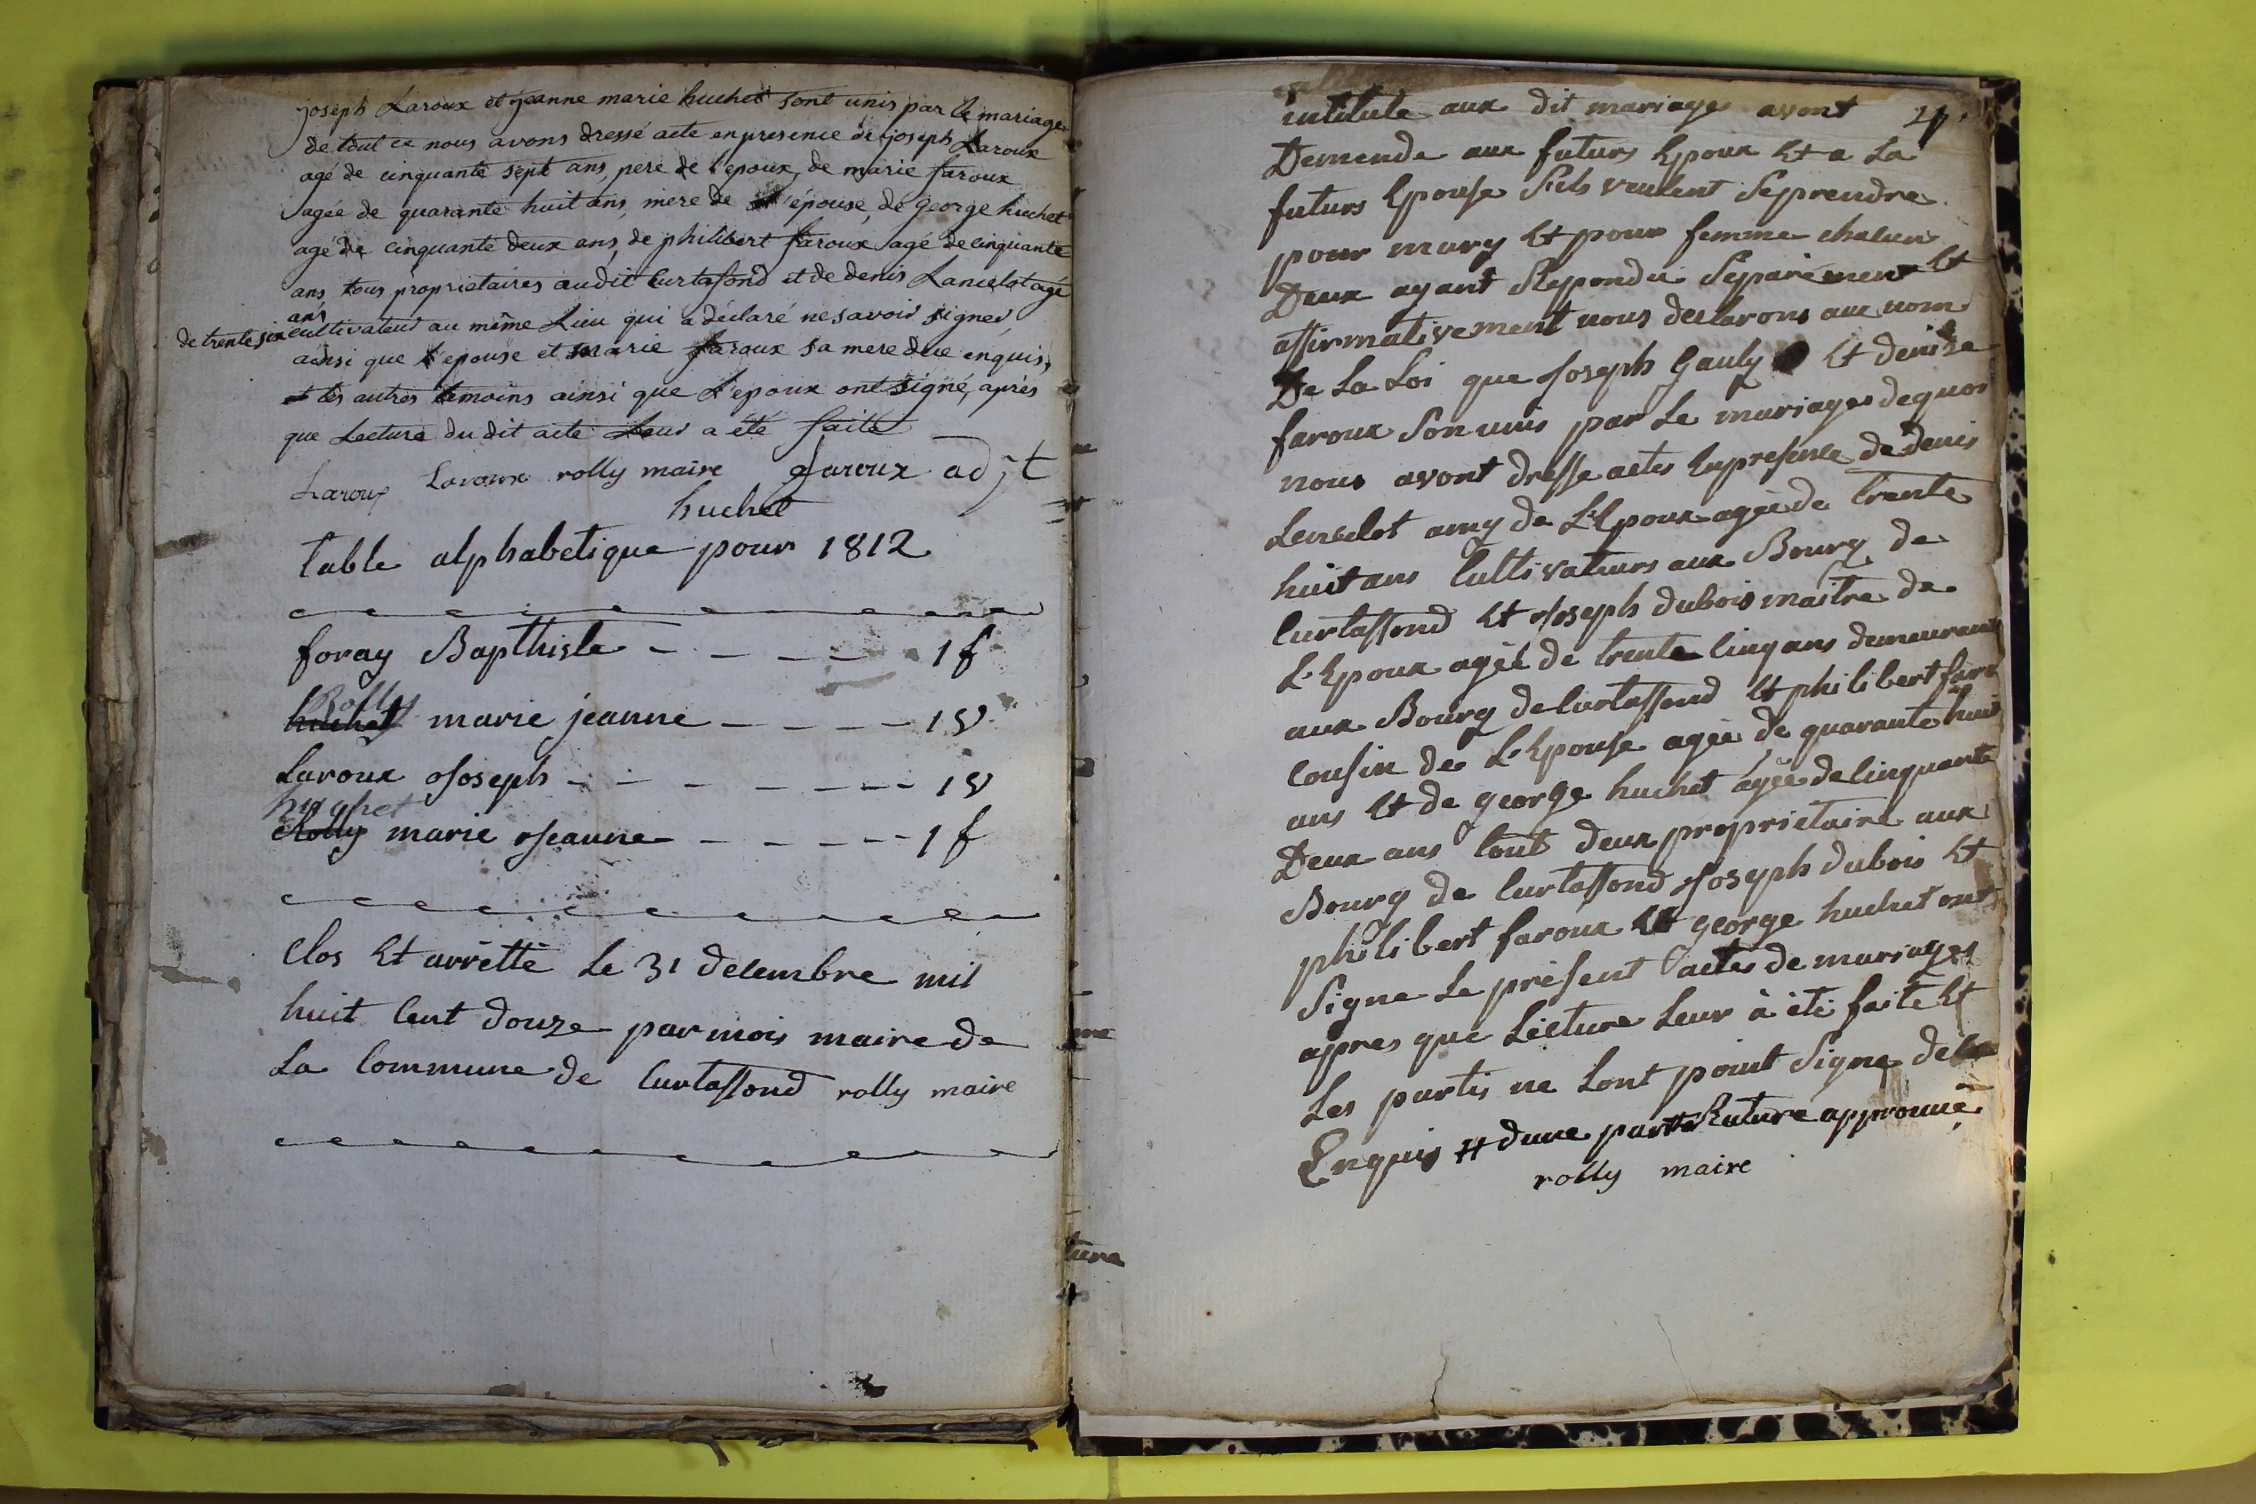 joseph Laroux et jeanne marie huchet sont unis par le mariage
de tout ce nous avons dressé acte en presence de joseph Laroux
agé de cinquante sept ans, pere de l'epoux, de marie faroux
agée de quarante huit ans, mere de l'épouse, de george huchet
agé de cinquante deux ans, de philibert faroux agé de cinquante
ans tous proprietaires audit Curtafond et de denis Lancelot agé
de trente six ans cultivateur au même Lieu qui a déclaré ne savoir signer,
ainsi que l'epouse et marie faroux sa mere de ce enquis,
et les autres temoins ainsi que L'epoux ont signé, après
que Lecture du dit acte Leur a été faite
Laroux Laroux rolly maire faroux adjt
huchet
table alphabetique pour 1812
foray Bapthiste - - - - 1 f
Rolly
huchet marie jeanne - - - - 1 v
Laroux Joseph - - - - - - 1 v
huchet
Rolly marie Jeanne - - - - - 1 f
Clos Et arrètté Le 31 decembre mil
huit Cent douze par mois maire de
La Commune de Curtaffond rolly maire
intitule aux dit mariage avont
Demende aux futurs Epoux Et a La
futurs Epouse Sils veulent Seprendre
pour mary Et pour femme chacun
Deux ayant Repondu Separément Et
affirmativement nous declarons aux nom
De La Loi que Joseph Gauly Et denize
faroux Son unis par Le mariages dequoi
nous avont dresse actes Enpresence de denis
Lencelot amy de L'Epoux agèe de trente
huit ans Cultivateurs aux Bourg de
Curtaffond Et Joseph dubois maître de
L'Epoux agèé de trente Cinq ans demeurant
aux Bourg de Curtaffond Et philibert farou
Cousin de L'Epouse agèe de quarante huit
ans Et de george huchet agèe de Cinquante
Deux ans tout deux proprietaire aux
Bourg de Curtaffond Joseph dubois Et
philibert faroux Et george huchet ont
Signe Le présent actes de mariages
apres que Lècture Leur à èté faite Et
Les partis ne Lont point Signe de ce
Enquis # dune part # Rature approuvé
rolly maire